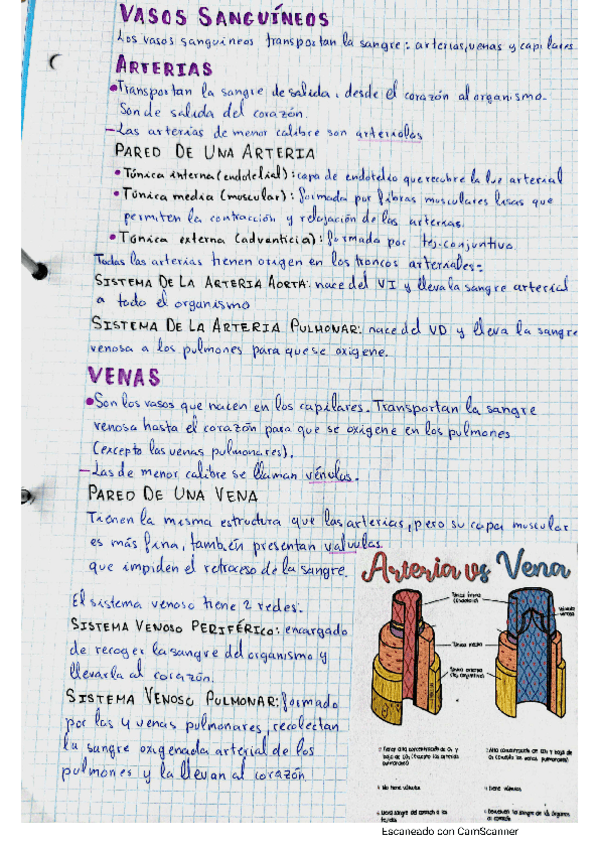 VASOS SANGUÍNEOS
Los vasos sanguineos transportan la sangre: arterias, venas y capilares.
ARTERIAS
• Transportan la sangre de salida, desde el corazón al organismo.
Son de salida del corazón.
- Las arterias de menor calibre son arteriolas
PARED DE UNA ARTERIA
• Túnica interna (endotelial): capa de endotelio que recubre la luz arterial
• Túnica media (muscular): formada por fibras musculares lisas que
permiten la contracción y relajación de las arterias.
• Túnica externa (adventicia): formada por tej. conjuntivo.
Todas las arterias tienen origen en los troncos arteriales:
SISTEMA DE LA ARTERIA AORTA: nace del VI y lleva la sangre arterial
a todo el organismo
SISTEMA DE LA ARTERIA PULMONAR: nace del VD y lleva la sangre
venosa a los pulmones para que se oxigene.
VENAS
• Son los vasos que nacen en los capilares. Transportan la sangre
venosa hasta el corazón para que se oxigene en los pulmones
(excepto las venas pulmonares).
- Las de menor calibre se llaman vénulas.
PARED DE UNA VENA
Tienen la misma estructura que las arterias, pero su capa muscular
es más fina, también presentan valvulas
que impiden el retroceso de la sangre.
El sistema venoso tiene 2 redes:
SISTEMA VENOSO PERIFÉRICO: encargado
de recoger la sangre del organismo y
llevarla al corazón.
SISTEMA VENOSO PULMONAR: formado
por las 4 venas pulmonares, recolectan
la sangre oxigenada arterial de los
pulmones y la llevan al corazón
Arteria vs Vena
Túnica íntima
(Endotelio)
Túnica media
Túnica externa
Válvula
venosa
No tiene válvulas
Tiene válvulas
Escaneado con CamScanner